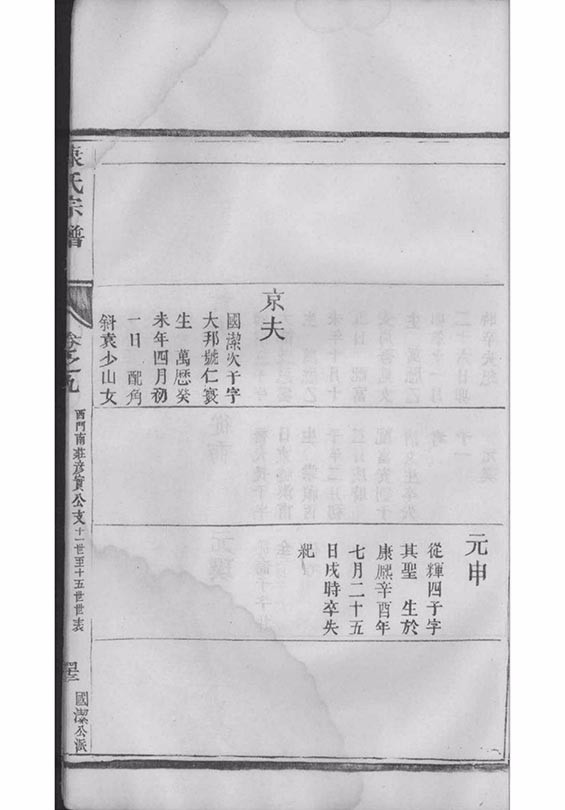 元申
從輝四子字
其聖 生於
康熈辛酉年
七月二十五
日戌時卒失
紀
京夫
國潔次子字
大邦號仁寰
生 萬厯癸
未年四月初
一日 配角
斜袁少山女
氏宗譜
卷之九
西門南莊彦賓公支十一世至十五世世表
國潔公派